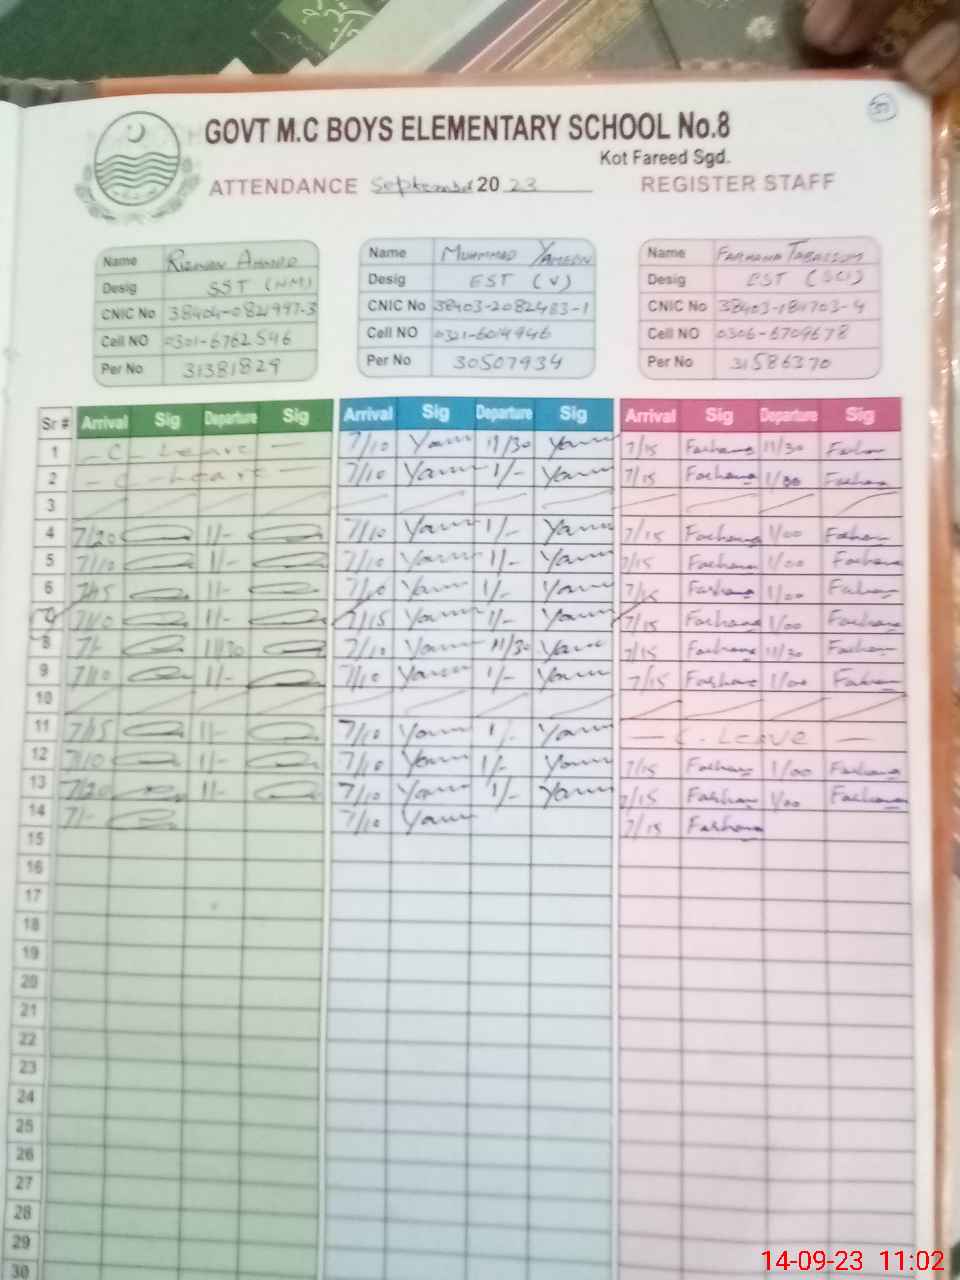 37
GOVT M.C BOYS ELEMENTARY SCHOOL No.8
Kot Fareed Sgd.
ATTENDANCE September 20 23 REGISTER STAFF
Name Rizwan Ahmad Name Muhmmad Yameen Name Farhana Tabassum
Desig SST (NM) Desig EST (V) Desig EST (SCI)
CNIC No CNIC No 38403-2082483-1 CNIC No
Cell NO 0301-6762546 Cell NO 0321-6014946 Cell NO 0306-6709678
Per No 31381829 Per No 30507934 Per No 31586370
Sr # Arrival Sig Departure Sig Arrival Sig Departure Sig Arrival Sig Departure Sig
1 - C - Leave - 7/10 11/30 7/15 Farhana 11/30
2 - C - Leave - 7/10 1/- 7/15 Farhana 1/00 Farhana
3
4 7/20 1/- 7/10 1/- 7/15 Farhana 1/00 Farhana
5 7/10 1/- 7/10 1/- 7/15 Farhana 1/00 Farhana
6 7/15 1/- 7/10 1/- 7/15 Farhana 1/00 Farhana
7 7/10 1/- 7/15 1/- 7/15 Farhana 1/00 Farhana
8 7/- 11/30 7/10 11/30 7/15 Farhana 11/30 Farhana
9 7/10 1/- 7/10 1/- 7/15 Farhana 1/00 Farhana
10
11 7/15 1/- 7/10 1/- - C. LEAVE -
12 7/10 1/- 7/10 1/- 7/15 Farhana 1/00 Farhana
13 7/20 1/- 7/10 1/- 7/15 Farhana 1/00 Farhana
14 7/- 7/10 7/15 Farhana
15
16
17
18
19
20
21
22
23
24
25
26
27
28
29
30
14-09-23 11:02